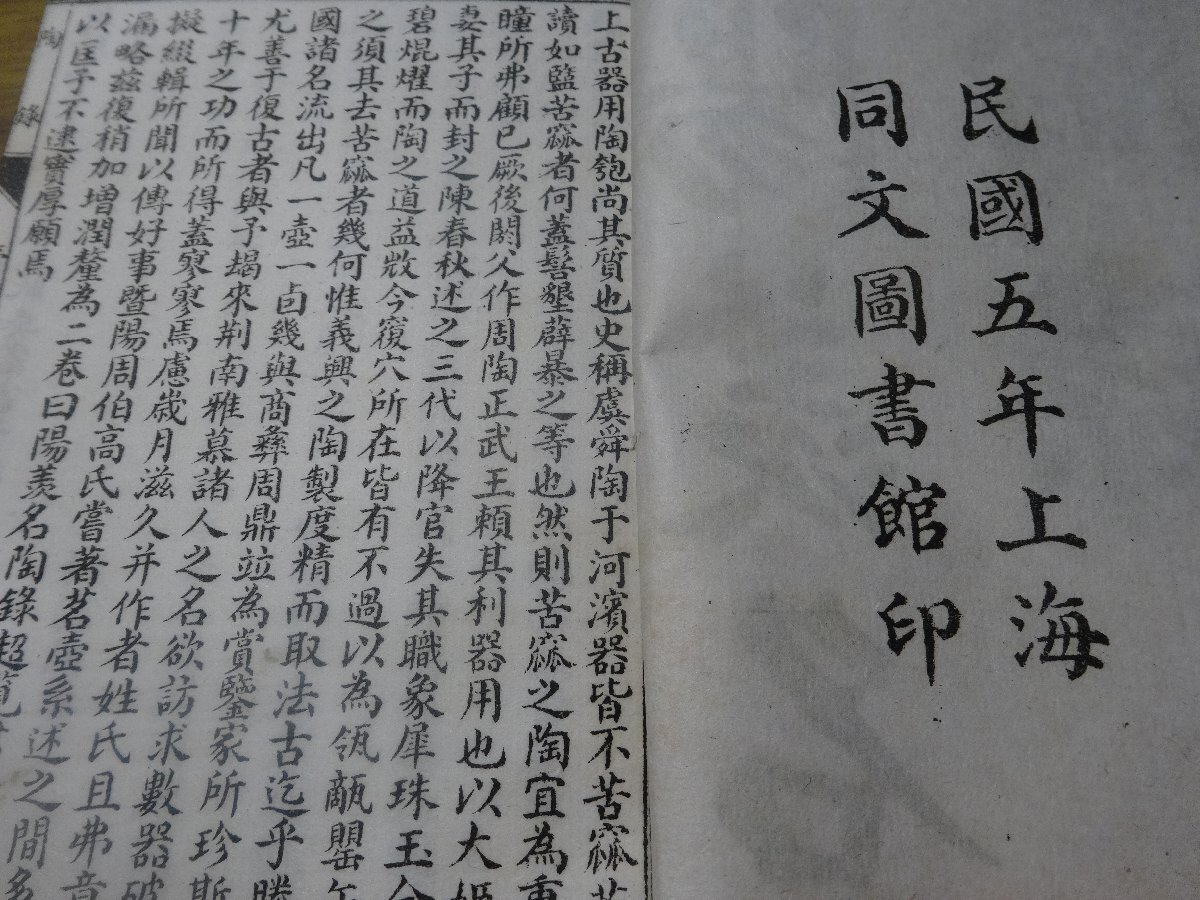 民國五年上海
同文圖書館印
上古器用陶匏尚其質也史稱虞舜陶于河濱器皆不苦窳苦
讀如盬苦窳者何蓋髻墾薜暴之等也然則苦窳之陶宜為重
瞳所弗顧已厥後閼父作周陶正武王賴其利器用也以大姬
妻其子而封之陳春秋述之三代以降官失其職象犀珠玉金
碧焜燿而陶之道益微今窑穴所在皆有不過以為瓴甋罌缶
之須其去苦窳者幾何惟義興之陶製度精而取法古迄乎勝
國諸名流出凡一壺一卣幾與商彝周鼎竝為賞鑒家所珍斯
尤善于復古者與予朅來荆南雅慕諸人之名欲訪求數器破
十年之功而所得蓋寥寥焉慮歲月滋久并作者姓氏且弗章
擬綴輯所聞以傳好事暨陽周伯高氏嘗著茗壺系述之間多
漏略茲復稍加增潤釐為二卷曰陽羨名陶錄超覽
以匡予不逮實厚願焉
陶錄